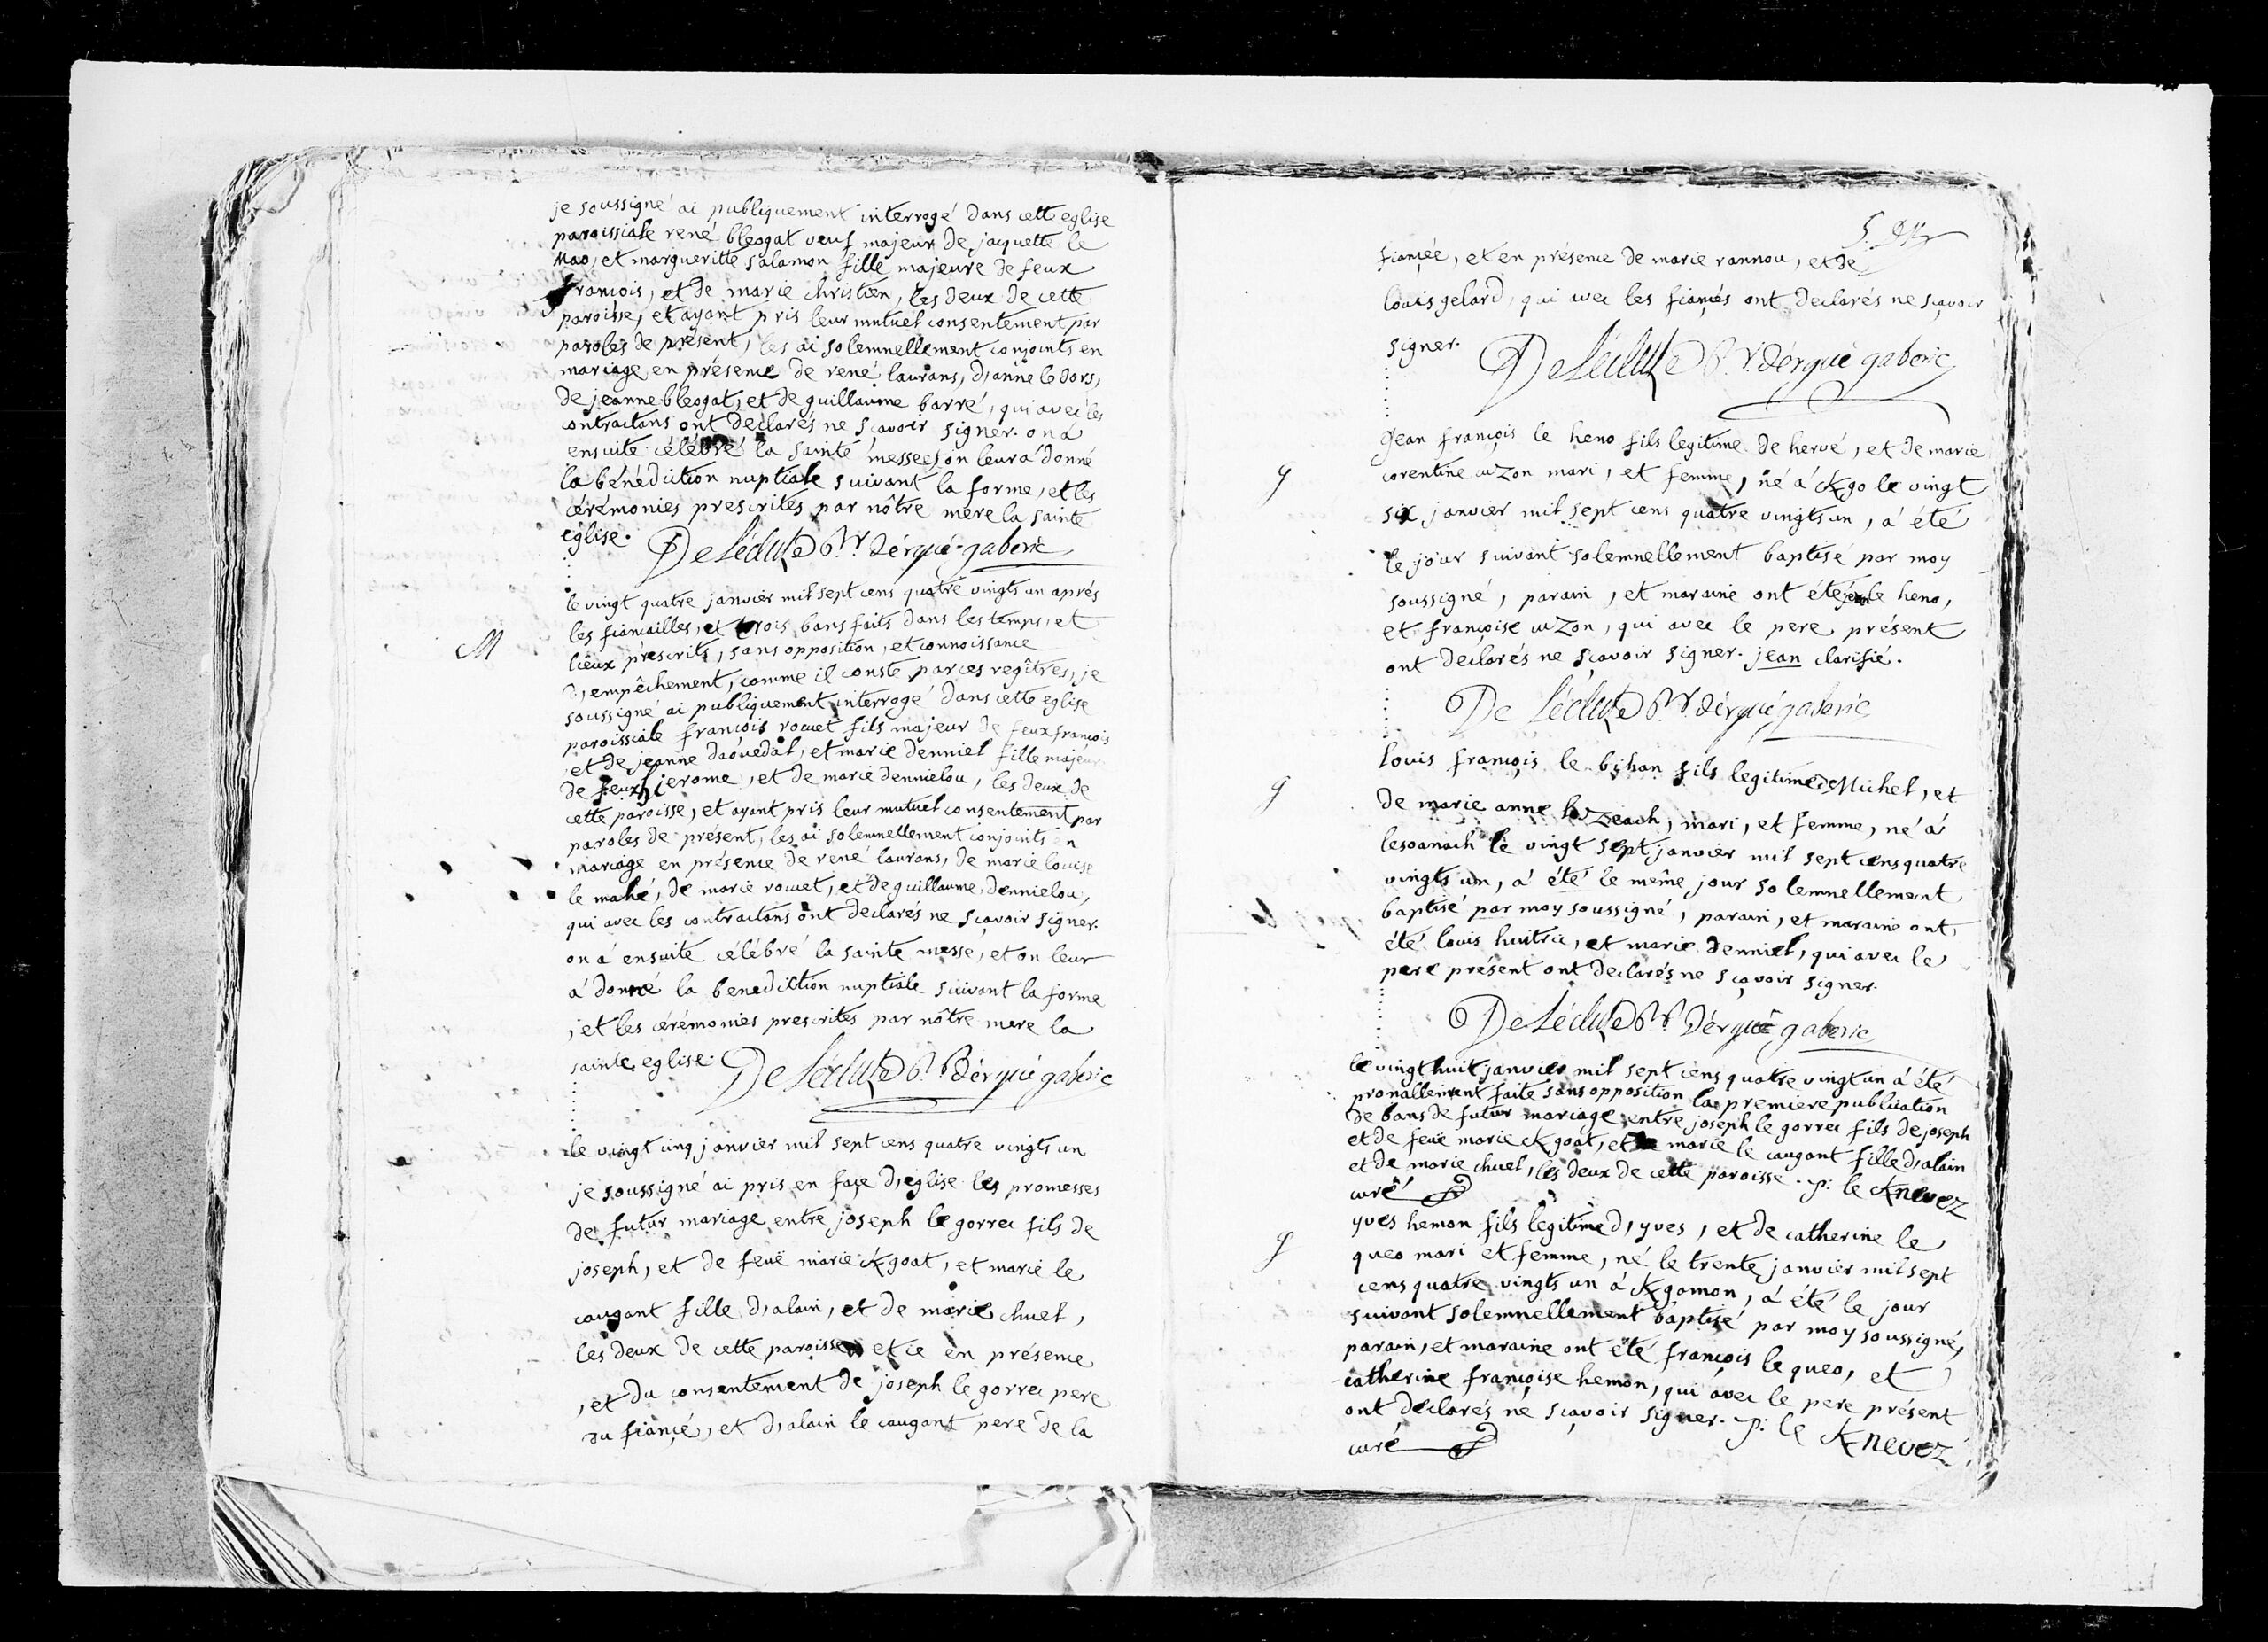 je soussigné ai publiquement interrogé dans cette eglise
paroissiale rené bleogat veuf majeur de jaquette le
Mao, et margueritte salamon fille majeure de feux
francois, et de marie christien, les deux de cette
paroisse, et ayant pris leur mutuel consentement par
paroles de présent, les ai solemnellement conjoints en
mariage en présence de rené laurans, d'anne le dors,
de jeanne bleogat, et de guillaume barré, qui avec les
contractans ont déclarés ne sçavoir signer. on á
ensuite célébré la sainte messe, on leur á donné
la bénédiction nuptiale suivant la forme, et les
cérémonies prescrites par nôtre mere la sainte
eglise. De Lécluze R.r dérgué-gaberic
le vingt quatre janvier mil sept cens quatre vingts un aprés
les fiancailles, et trois bans faits dans les temps, et
M
lieux prescrits, sans opposition, et connoissance
d'empêchement, comme il conste par ces regîtres, je
soussigné ai publiquement interrogé dans cette eglise
paroissiale francois rouet fils majeur de feux francois
et de jeanne daouedal, et marie denniel fille majeur
de feux jerome, et de marie dennielou, les deux de
cette paroisse, et ayant pris leur mutuel consentement par
paroles de présent, les ai solemnellement conjoints en
mariage en présence de rené laurans, de marie louise
le mahé, de marie rouet, et de guillaume dennielou,
qui avec les contractans ont declarés ne sçavoir signer.
on á ensuite célébré la sainte messe, et on leur
á donné la benediction nuptiale suivant la forme
, et les cérémonies prescrites par nôtre mere la
sainte eglise. De Lécluze R.r dérgué gaberic
le vingt cinq janvier mil sept cens quatre vingts un
je soussigné ai pris en façe d'eglise les promesses
de futur mariage entre joseph le gorrec fils de
joseph, et de feuë marie K/goat, et marie le
caugant fille d'alain, et de marie chuel,
les deux de cette paroisse et ce en présence
, et du consentement de joseph le gorrec pere
du fiançé, et d'alain le caugant pere de la
5.
fiançée, et en présence de marie rannou, et de
louis gelard, qui avec les fiançés ont declarés ne sçavoir
signer. De Lécluze R.r dérgué gaberic
Jean françois le heno fils legitime de hervé, et de marie
corentine cuzon mari, et femme, né á K/go le vingt
six janvier mil sept cens quatre vingts un, á été
le jour suivant solemnellement baptisé par moy
soussigné, parain, et maraine ont été jean le heno,
et françoise cuzon, qui avec le pere présent
ont declarés ne sçavoir signer. jean clarifié.
De Lécluze R.r dérgué gaberic
louis françois le bihan fils legitime de Michel, et
de marie anne le zeach, mari, et femme, né á
lesoanach le vingt sept janvier mil sept cens quatre
vingts un, á été le même jour solemnellement
baptisé par moy soussigné, parain, et maraine ont
été louis huitric, et marie denniel, qui avec le
pere présent ont declarés ne sçavoir signer.
De Lécluze R.r dérgué gaberic
le vingt huit janvier mil sept cens quatre vingt un á été
pronallement faite sans opposition la premiere publication
de bans de futur mariage entre joseph le gorrec fils de joseph
et de feuë marie K/goat, et marie le caugant fille d'alain
et de marie chuel, les deux de cette paroisse. p: le K/nevez
curé
yves hemon fils legitime d'yves, et de catherine le
queo mari et femme, né le trente janvier mil sept
cens quatre vingts un á K/gamon, á été le jour
suivant solemnellement baptisé par moy soussigné,
parain, et maraine ont été françois le queo, et
catherine françoise hemon, qui avec le pere présent
ont declarés ne sçavoir signer. p: le K/nevez
curé